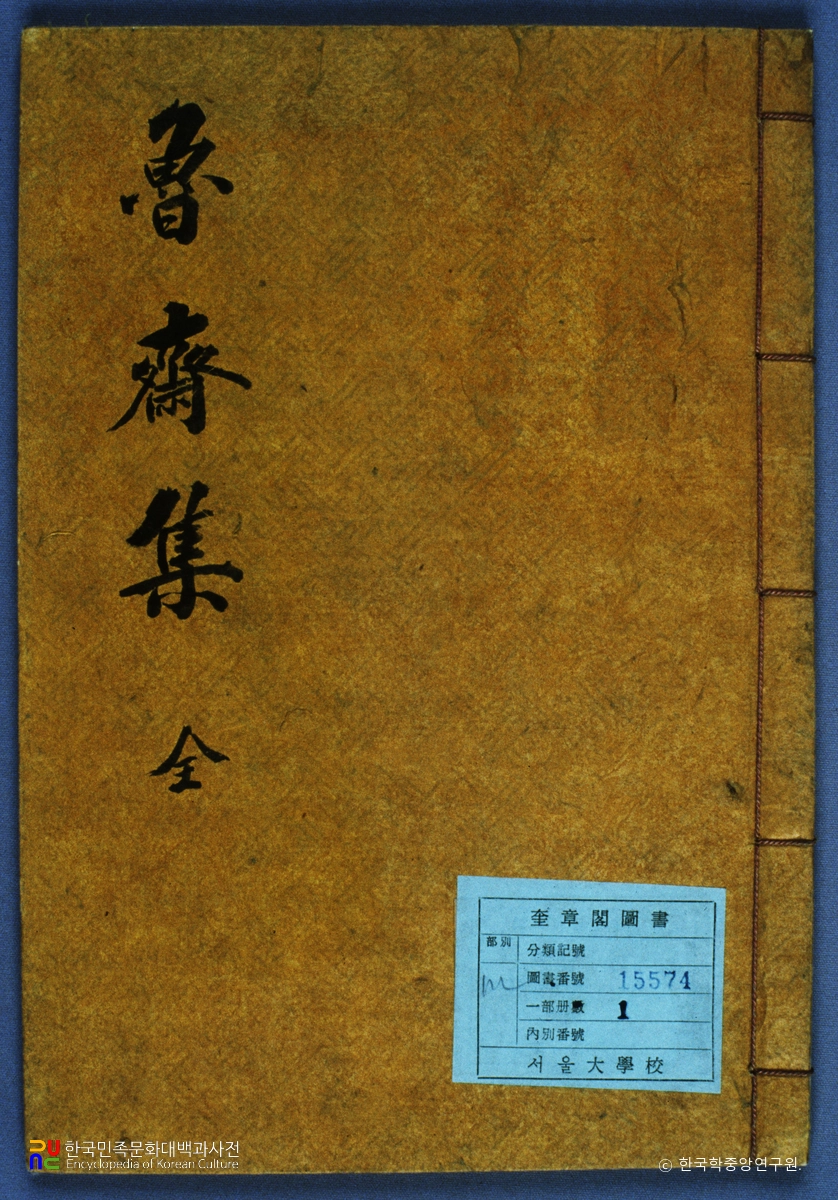 魯齋集 全
奎章閣圖書
部別
分類記號
圖書番號 15574
一部册數 1
內別番號
서울大學校
한국민족문화대백과사전
Encyclopedia of Korean Culture
© 한국학중앙연구원.